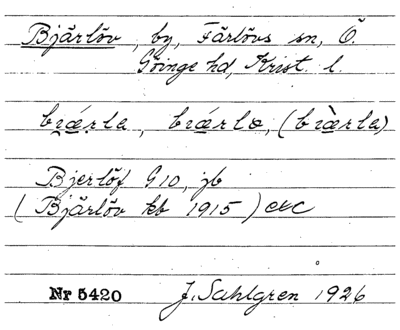 Bjärlöv, by, Färlövs sn, Ö.
Göinge hd, Krist. l.
bıǽrla, bıǽrlə, (bıæ̀rla)
Bjerlöf G10, jb
(Bjärlöv kb 1915) etc
Nr 5420 J. Sahlgren 1926